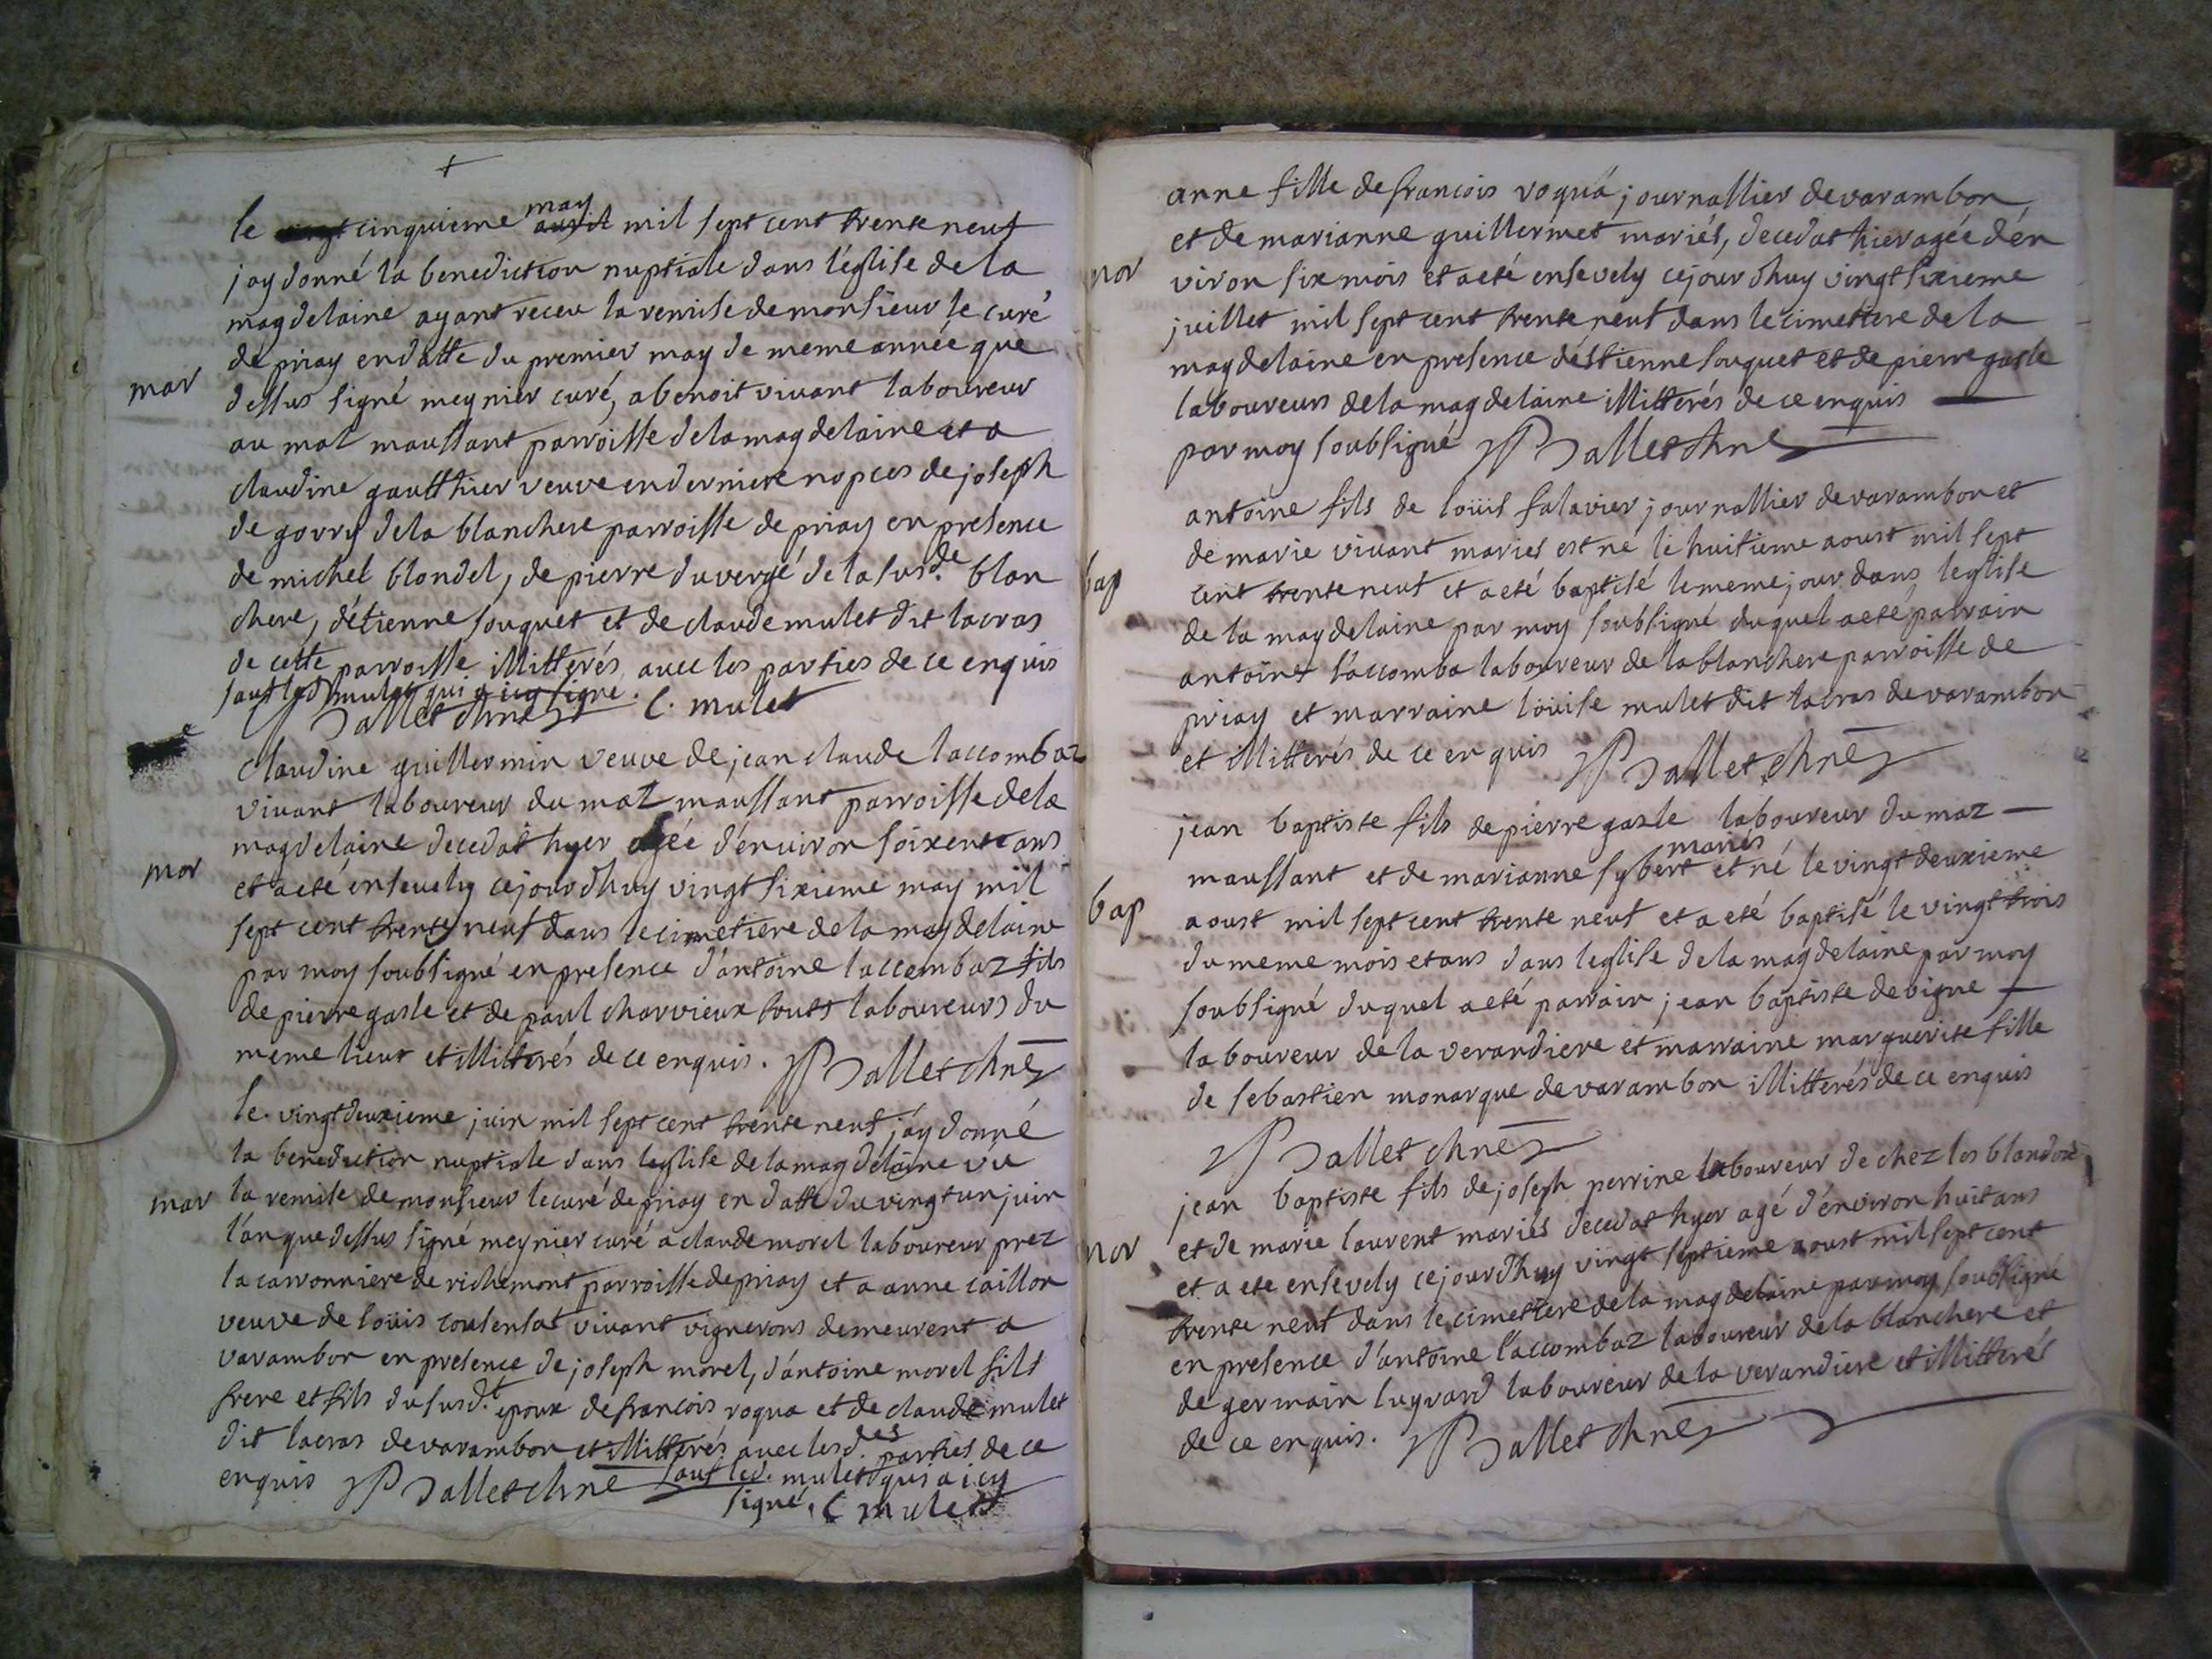 le cinquieme may mil sept cent trente neuf
jay donné la benediction nuptiale dans l'église de la
magdelaine ayant receu la remise de monsieur le curé
de priay en datte du premier may de meme année que
mar
dessus signé meynier curé, a benoit vivant laboureur
au mat maussant parroisse de la magdelaine et a
claudine gautthier veuve en derniere nopces de joseph
de gorry de la blanchere parroisse de priay en presence
de michel blondel, de pierre du vergé de la susd.de blan
chere, d'étienne souquet et de claude mulet dit lacras
de cette parroisse illitterés avec les parties de ce enquis
sauf led mulet qui a icy signé.
Ballet chne C. mulet
claudine guillermin veuve de jean claude laccombaz
vivant laboureur du mat maussant parroisse de la
magdelaine decedat hyer agée d'environ soixente ans
mor
et a eté ensevely cejourdhuy vingt sixieme may mil
sept cent trente neuf dans le cimetiere de la magdelaine
par moy soubsigné en presence d'antoine laccombaz fils
de pierre gasle et de paul charvieux touts laboureurs du
meme lieux et illitterés de ce enquis. Ballet chne
le vingt deuxieme juin mil sept cent trente neuf j'ay donné
la benediction nuptiale dans leglise de la magdelaine vu
mar
la remise de monsieur le curé de priay en datte du vingt un juin
l'an que dessus signé meynier curé a claude morel laboureur prez
la carronniere de richemont parroisse de priay et a anne caillon
veuve de loüis cousensat vivant vignerons demeurent a
varambon en presence de joseph morel, d'antoine morel fils
frere et fils du susd.t epoux de francois roqua et de claude mulet
dit lacras de varambon et illitterés avec lesd.es parties de ce
enquis Ballet chne sauf led. mulet qui a icy
signé. C mulet
anne fille de francois roqua journallier de varambon
et de marianne guillermet mariés, decedat hier agée d'en
mor
viron six mois et a eté ensevely cejourdhuy vingt sixieme
juillet mil sept cent trente neuf dans le cimettiere de la
magdelaine en presence d'éstienne souquet et de pierre gasle
laboureurs de la magdelaine illitterés de ce enquis
par moy soubsigné Ballet chne
antoine fils de loüis falavier journallier de varambon et
de marie vivant mariés est né le huitieme aoust mil sept
bap
cent trente neuf et a eté baptisé le meme jour dans leglise
de la magdelaine par moy soubsigné duquel a eté parrain
antoine laccomba laboureur de la blanchere parroisse de
priay et marraine loüise mulet dit lacras de varambon
et illitterés de ce enquis Ballet chne
jean baptiste fils de pierre gasle laboureur du maz
maussant et de marianne sybert mariés et né le vingt deuxieme
bap
aoust mil sept cent trente neuf et a eté baptisé le vingt trois
du meme mois et ans dans leglise de la magdelaine par moy
soubsigné duquel a eté parrain jean baptiste devigne
laboureur de la verandiere et marraine marguerite fille
de sebastien monarque de varambon illitterés de ce enquis
Ballet chne
jean baptiste fils de joseph perrine laboureur de chez les
et de marie laurent mariés decedat hyer agé d'énviron huit ans
mor
et a ete ensevely cejourdhuy vingt septieme aoust mil sept cent
trente neuf dans le cimettiere de la magdelaine par moy soubsigné
en presence d'antoine laccombaz laboureur de la blanchere et
de germain lugrard laboureur de la verandiere et illitterés
de ce enquis. Ballet chne